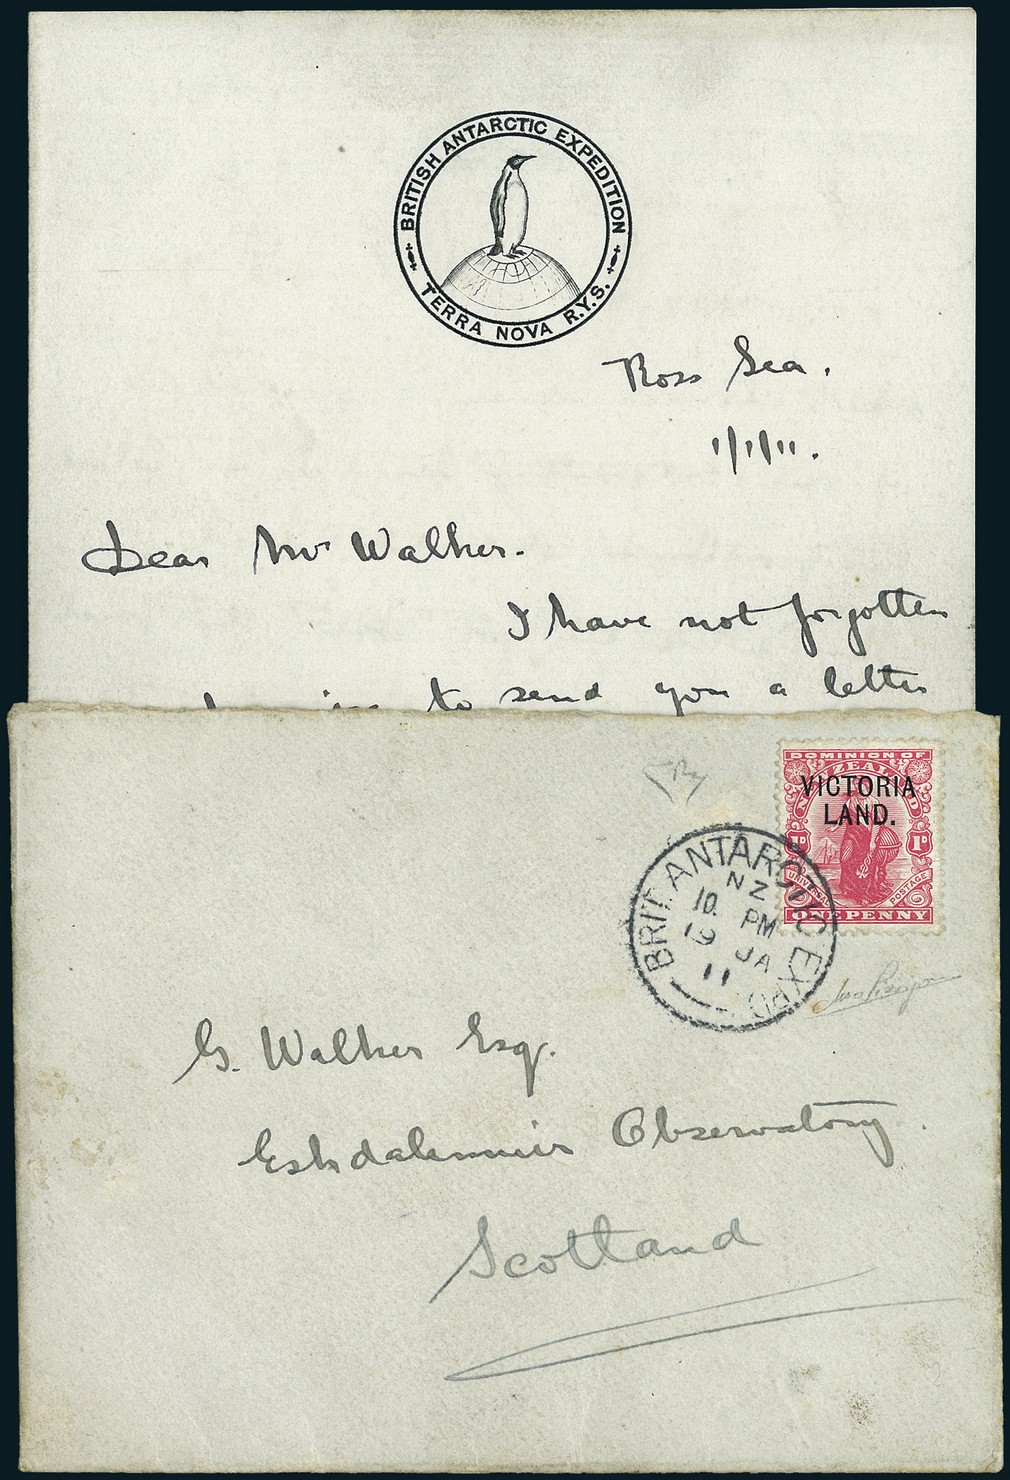 BRITISH ANTARCTIC EXPEDITION
TERRA NOVA R.Y.S.
Ross Sea.
1/1/11.
Dear Mr Walker.
I have not forgotten
to send you a letter
DOMINION OF
NEW ZEALAND
VICTORIA
LAND.
1D 1D
UNIVERSAL POSTAGE
ONE PENNY
BRIT. ANTARCTIC EXPD.
NZ
10 PM
19 JA
11
G. Walker Esq.
Eskdalemuir Observatory.
Scotland